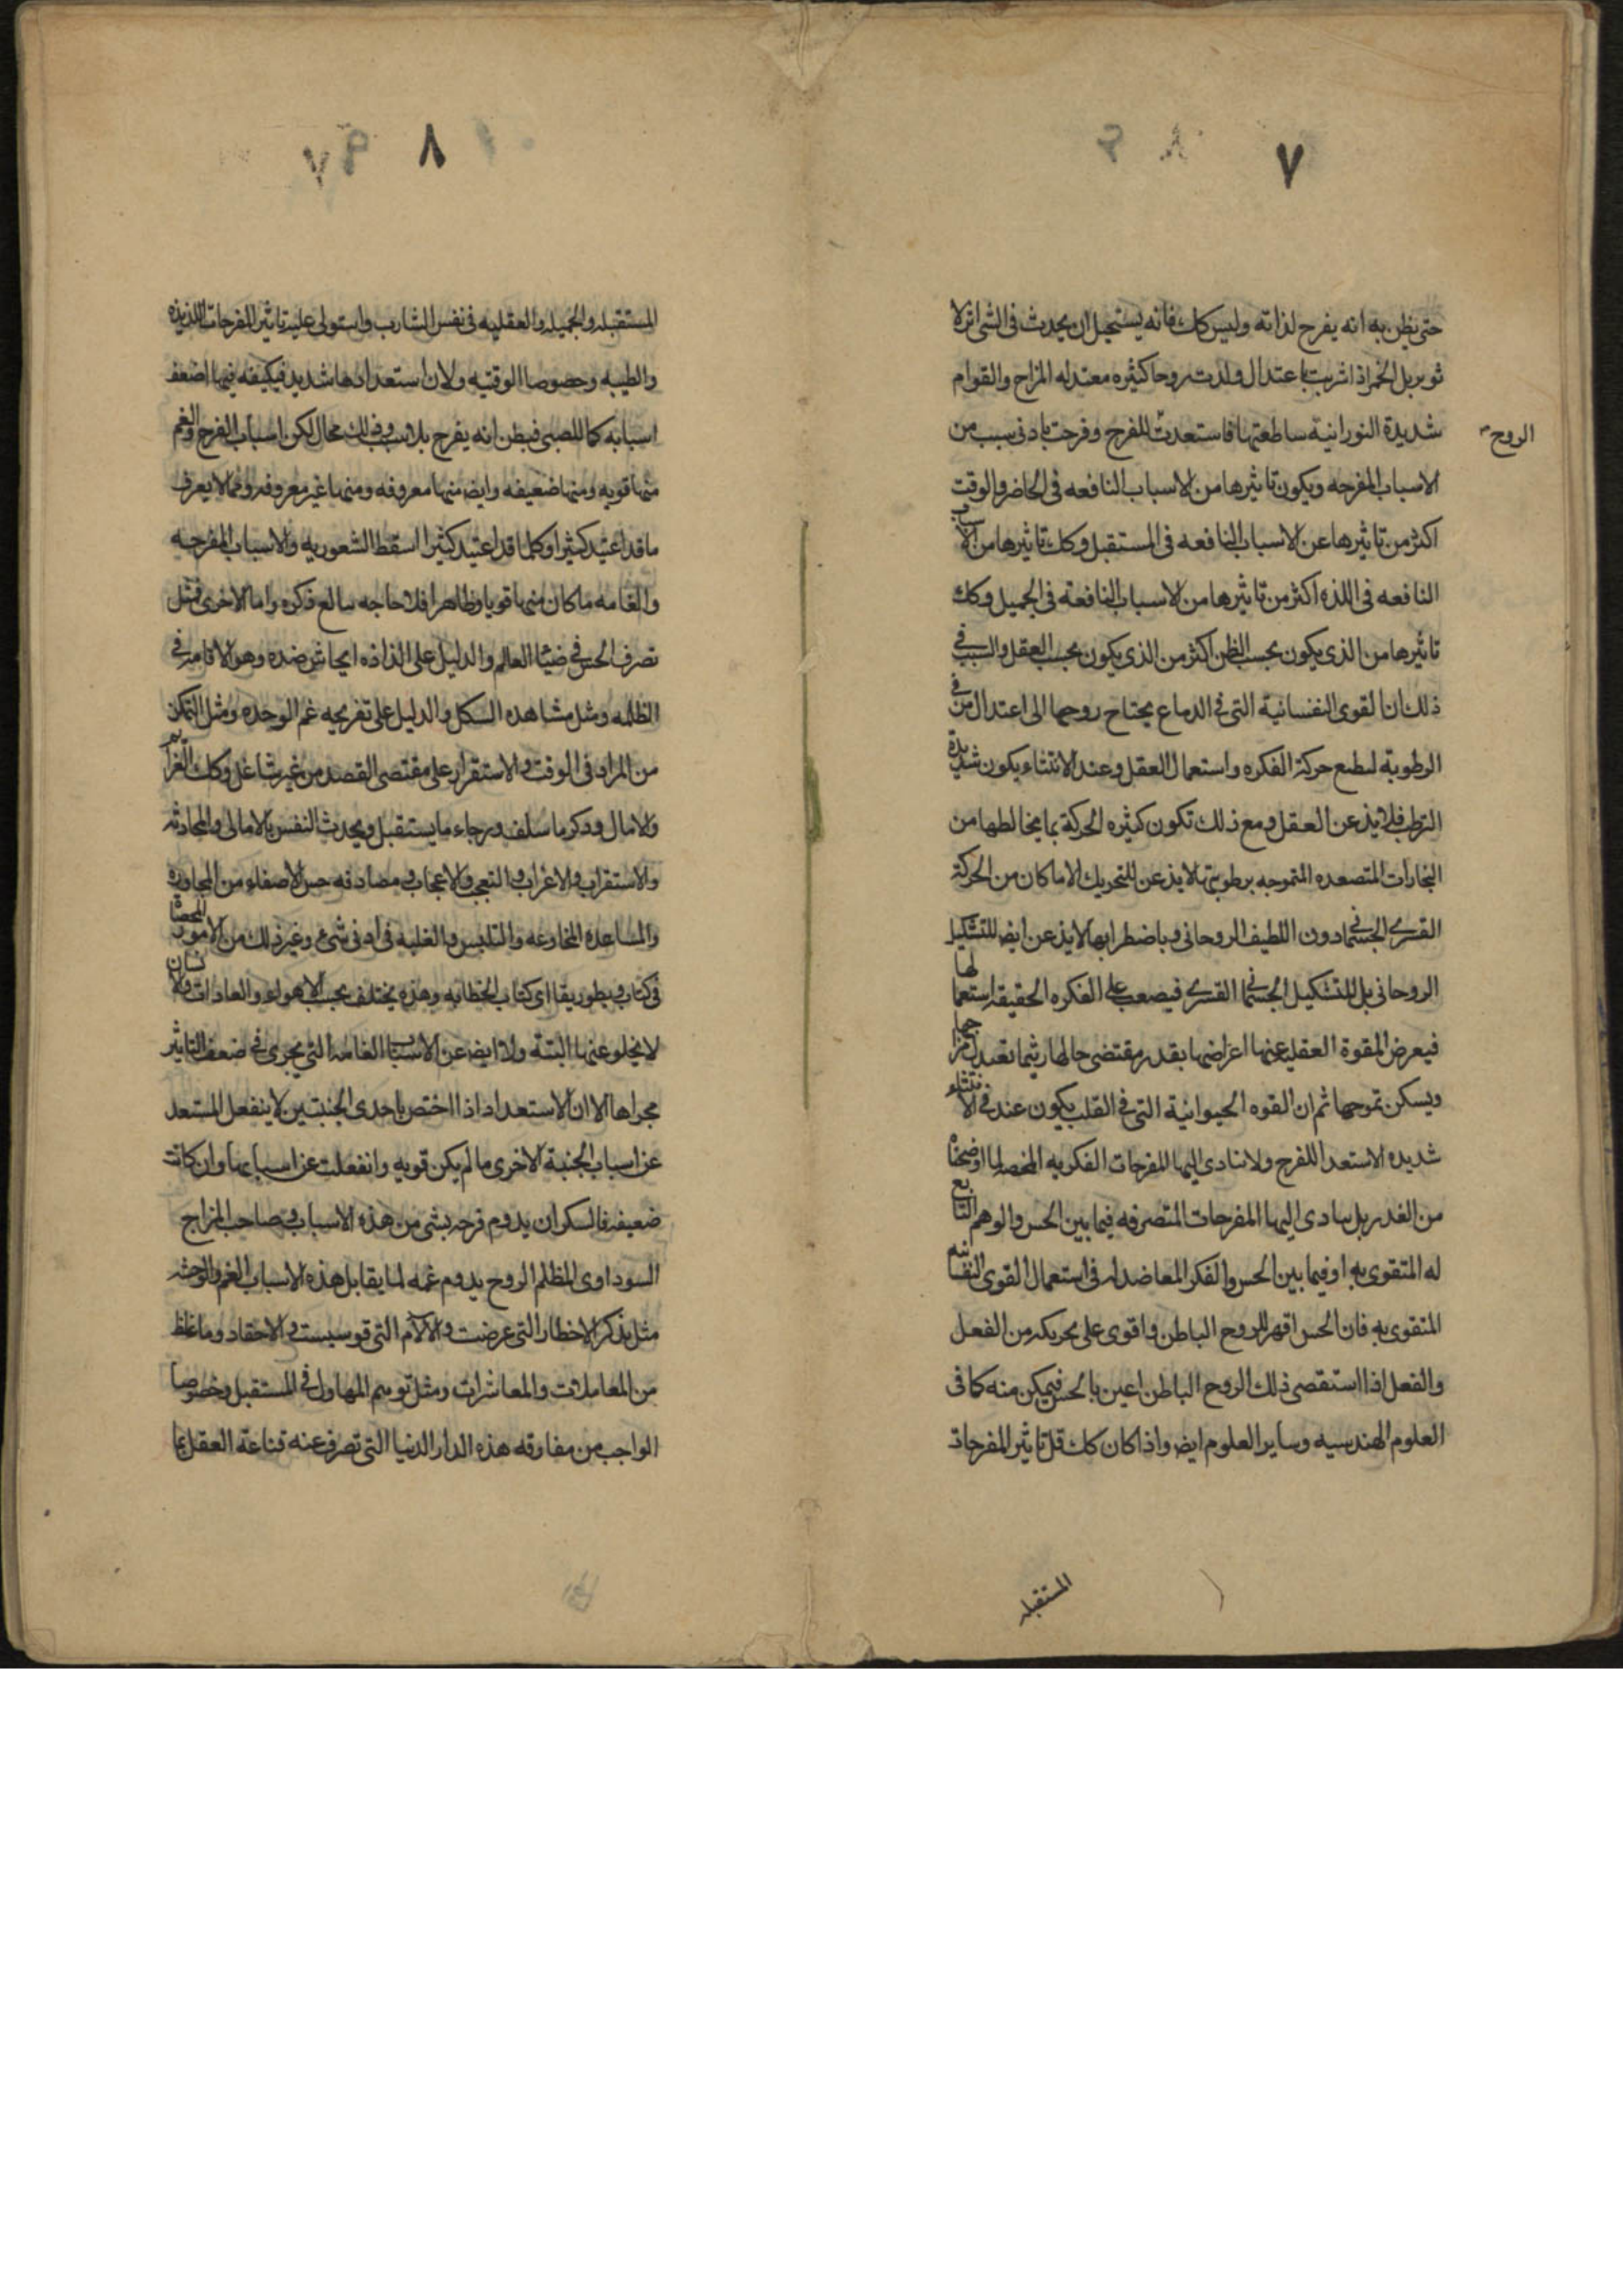 ٧
حتى يظن به انه يفرح لذاته وليس كك فانه يستحيل ان يحدث فى الشى اثر لا
موثر بل الخمر اذا شربت باعتدال ولدت روحا كثيره معتدله المزاج والقوام
شديدة النورانية ساطعتها فاستعدت للفرح وفرحت بادنى سبب من
الروح
الاسباب المفرحه ويكون تاثيرها من الاسباب النافعه فى الحاضر والوقت
اكثر من تاثيرها عن الاسباب النافعه فى المستقبل وكك تاثيرها من الاسباب
النافعه فى اللذه اكثر من تاثيرها من الاسباب النافعة فى الجميل وكك
تاثيرها من الذى يكون بحسب الظن اكثر من الذى يكون بحسب العقل والسبب فى
ذلك ان القوى النفسانية التى فى الدماغ يحتاج روحها الى اعتدال من فى
الرطوبة حركة الفكره واستعمال العقل وعند الانتشاء يكون شديدة
الترطب فلا يذعن للعقل ومع ذلك تكون كثيره الحركة بما يخالطها من
البخارات المتصعده المتموجه برطوبتها لا يذعن للتحريك الا ما كان من الحركة
القسرى الجسمانى دون اللطيف الروحانى وباضطرابها لا يذعن ايض للتشكيل
الروحانى بل للتشكيل الجسمانى القسرى فيصعب على الفكره الحقيقه استعمالها
فيعرض المقوة العقليه عنها اعراضها بقدر مقتضى حالها ريثما تعبدل مزاجها
ويسكن تموجها ثم ان القوه الحيوانية التى فى القلب يكون عند فى الانتشاء
شديده الاستعداد للفرح ولا تتادى اليها المفرحات الفكريه
من الغد بل يتادى اليها المفرحات المتصرفه فيما بين الحس والوهم التابع
له المتقوى به او فيما بين الحس والفكر المعاضد له فى استعمال القوى النفسانيه
المتقوى به فان الحس اقهر للروح الباطن واقوى على تحريكه من الفعل
والفعل اذا استقصى ذلك الروح الباطن اعين بالحس فيمكن منه كما فى
العلوم الهندسيه وساير العلوم ايض واذا كان كك قل تاثير المفرحات
المستقبله
٨
المستقبله والجميله والعقليه فى نفس الشارب واستولى عليه تاثير المفرحات اللذيذه
والطيبه وخصوصا الوقتيه ولان استعدادها شديد فيكفيه فيها اضعف
اسبابه كما للصبى فيظن انه يفرح بلا سبب وذلك محال لكن اسباب الفرح والغم
منها قويه ومنها ضعيفه وايض منها معروفه ومنها غير معروفه ومما لا يعرف
ما قد اعتيد كثيرا وكل ما قد اعتيد كثيرا اسقط الشعور به والاسباب المفرحه
والغامه ما كان منها قويا وظاهرا فلا حاجه بنا الى ذكره واما الاخرى فمثل
تصرف الحس فى ضياء العالم والدليل على الذاذه ايحاش ضده وهو الاقامه فى
الظلمه ومثل مشاهده الشكل والدليل على تفريحه غم الوحده ومثل التمكن
من المراد فى الوقت والاستقرار على مقتضى القصد من غير شاغل وكك العزايم
والامال وذكر ما سلف ورجاء ما يستقبل ويحدث النفس بالامانى والمحادثه
والاستقراب والاغراب والتعجب والاعجاب ومصادفه حسن الاصغاء من المحاوره
والمساعده المخادعه والتلبيس والغلبه فى ادنى شىء وغير ذلك من الامور المحصاة
فى كتاب ريطوريقا اى كتاب الخطابه وهذه يختلف بحسب الاهواء والعادات والاسنان
لا يخلو عنها البتة ولا ايض عن الاسباب الغامه التى يجرى فى ضعف التاثير
مجراها الا ان الاستعداد اذا اختص باحدى الجنبتين لا ينفعل المستعد
عن اسباب الجنبة الاخرى ما لم يكن قويه وانفعلت عن اسبابها وان كانت
ضعيفه فالسكران يدوم فرحه بشى من هذه الاسباب وصاحب المزاج
السوداوى المظلم الروح يدوم غمه لما يقابل هذه الاسباب الغم والوحشه
مثل تذكر الاخطار التى عرضت والالام التى قوسيت والاحقاد وما غاظ
من المعاملات والمعاشرات ومثل توهم المهاول فى المستقبل وخصوصا
الواجب من مفارقه هذه الدار الدنيا التى تصرف عنه قناعة العقل بما